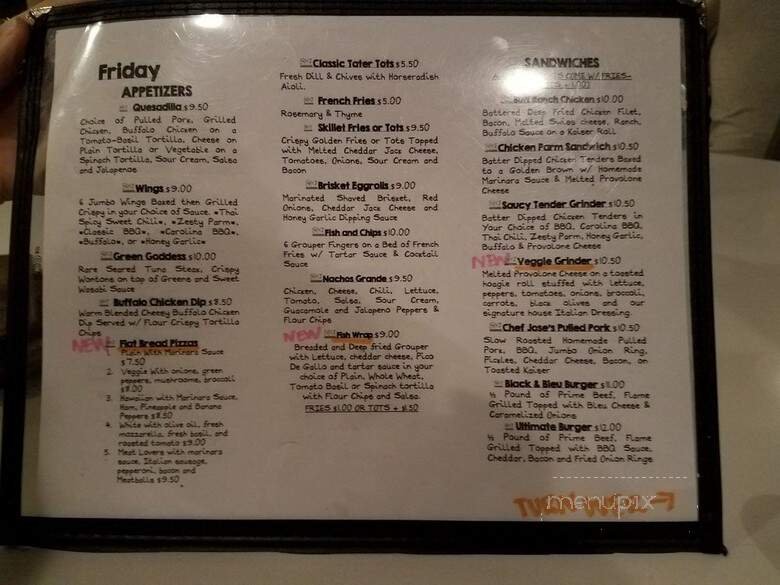 Friday
APPETIZERS
Quesadilla $9.50
Choice of Pulled Pork, Grilled
Chicken, Buffalo Chicken on a
Tomato-Basil Tortilla, Cheese on
Plain Tortilla or Vegetable on a
Spinach Tortilla, Sour Cream, Salsa
and Jalapenos
Wings $9.00
6 Jumbo Wings Baked then Grilled
Crispy in your Choice of Sauce. *Thai
Spicy Sweet Chili*, *Zesty Parm*,
*Classic BBQ*, *Carolina BBQ*,
*Buffalo*, or *Honey Garlic*
Green Goddess $10.00
Rare Seared Tuna Steak, Crispy
Wontons on top of Greens and Sweet
Wasabi Sauce
Buffalo Chicken Dip $8.50
Warm Blended Cheesy Buffalo Chicken
Dip Served w/ Flour Crispy Tortilla
Chips
NEW Flat Bread Pizzas
1. Plain With Marinara Sauce
$7.50
2. Veggie with onions, green
peppers, mushrooms, broccoli
$8.00
3. Hawaiian with Marinara Sauce,
Ham, Pineapple and Banana
Peppers $8.50
4. White with olive oil, fresh
mozzarella, fresh basil, and
roasted tomato $9.00
5. Meat Lovers with marinara
sauce, Italian sausage,
pepperoni, bacon and
Meatballs $9.50
Classic Tater Tots $5.50
Fresh Dill & Chives with Horseradish
Aioli.
French Fries $5.00
Rosemary & Thyme
Skillet Fries or Tots $9.50
Crispy Golden Fries or Tots Topped
with Melted Cheddar Jack Cheese,
Tomatoes, Onions, Sour Cream and
Bacon
Brisket Eggrolls $9.00
Marinated Shaved Brisket, Red
Onions, Cheddar Jack Cheese and
Honey Garlic Dipping Sauce
Fish and Chips $10.00
6 Grouper Fingers on a Bed of French
Fries w/ Tartar Sauce & Cocktail
Sauce
Nachos Grande $9.50
Chicken, Cheese, Chili, Lettuce,
Tomato, Salsa, Sour Cream,
Guacamole and Jalapeno Peppers &
Flour Chips
NEW Fish Wrap $9.00
Breaded and Deep fried Grouper
with Lettuce, cheddar cheese, Pico
De Gallo and tartar sauce in your
choice of Plain, Whole Wheat,
Tomato Basil or Spinach tortilla
with Flour Chips and Salsa
FRIES $1.00 OR TOTS + $1.50
SANDWICHES
COME W/ FRIES-
Ranch Chicken $10.00
Battered Deep Fried Chicken Filet,
Bacon, Melted Swiss cheese, Ranch,
Buffalo Sauce on a Kaiser Roll
Chicken Parm Sandwich $10.50
Batter Dipped Chicken Tenders Baked
to a Golden Brown w/ Homemade
Marinara Sauce & Melted Provolone
Cheese
Saucy Tender Grinder $10.50
Batter Dipped Chicken Tenders in
Your Choice of BBQ, Carolina BBQ,
Thai Chili, Zesty Parm, Honey Garlic,
Buffalo & Provolone Cheese
NEW Veggie Grinder $10.50
Melted Provolone Cheese on a toasted
hoagie roll stuffed with lettuce,
peppers, tomatoes, onions, broccoli,
carrots, black olives and our
signature house Italian Dressing
Chef Jose's Pulled Pork $10.50
Slow Roasted Homemade Pulled
Pork, BBQ, Jumbo Onion Ring,
Pickles, Cheddar Cheese, Bacon, on
Toasted Kaiser
Black & Bleu Burger $11.00
½ Pound of Prime Beef, Flame
Grilled Topped with Bleu Cheese &
Caramelized Onions
Ultimate Burger $12.00
½ Pound of Prime Beef, Flame
Grilled Topped with BBQ Sauce,
Cheddar, Bacon and Fried Onion Rings
menupix